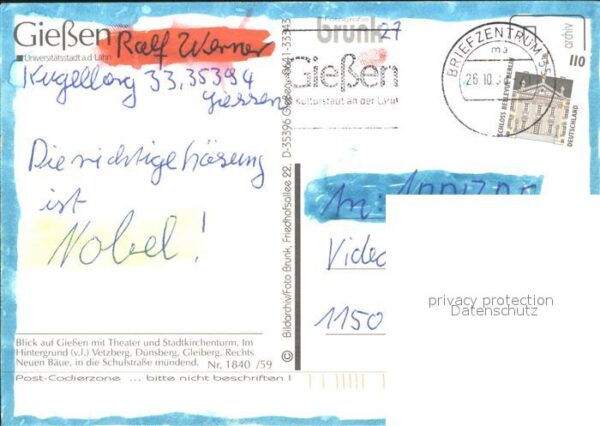 Gießen
Universitätsstadt a.d. Lahn
Ralf Werner
Kugelberg 33, 35394
Giessen
Die richtige Lösung
ist
Nobel!
Blick auf Gießen mit Theater und Stadtkirchenturm. Im
Hintergrund (v.l.) Vetzberg, Dünsberg, Gleiberg. Rechts
Neuen Bäue, in die Schulstraße mündend. Nr. 1840 /59
Post-Codierzone ... bitte nicht beschriften !
© Bildarchiv/Foto Brunk, Friedhofsallee 22, D-35396 Gießen
brunk
27
Gießen
Kulturstadt an der Lahn
BRIEFZENTRUM 35
ma
26.10.
archiv
110
SCHLOSS BELLEVUE BERLIN
DEUTSCHLAND
An:
Video
1150
privacy protection
Datenschutz